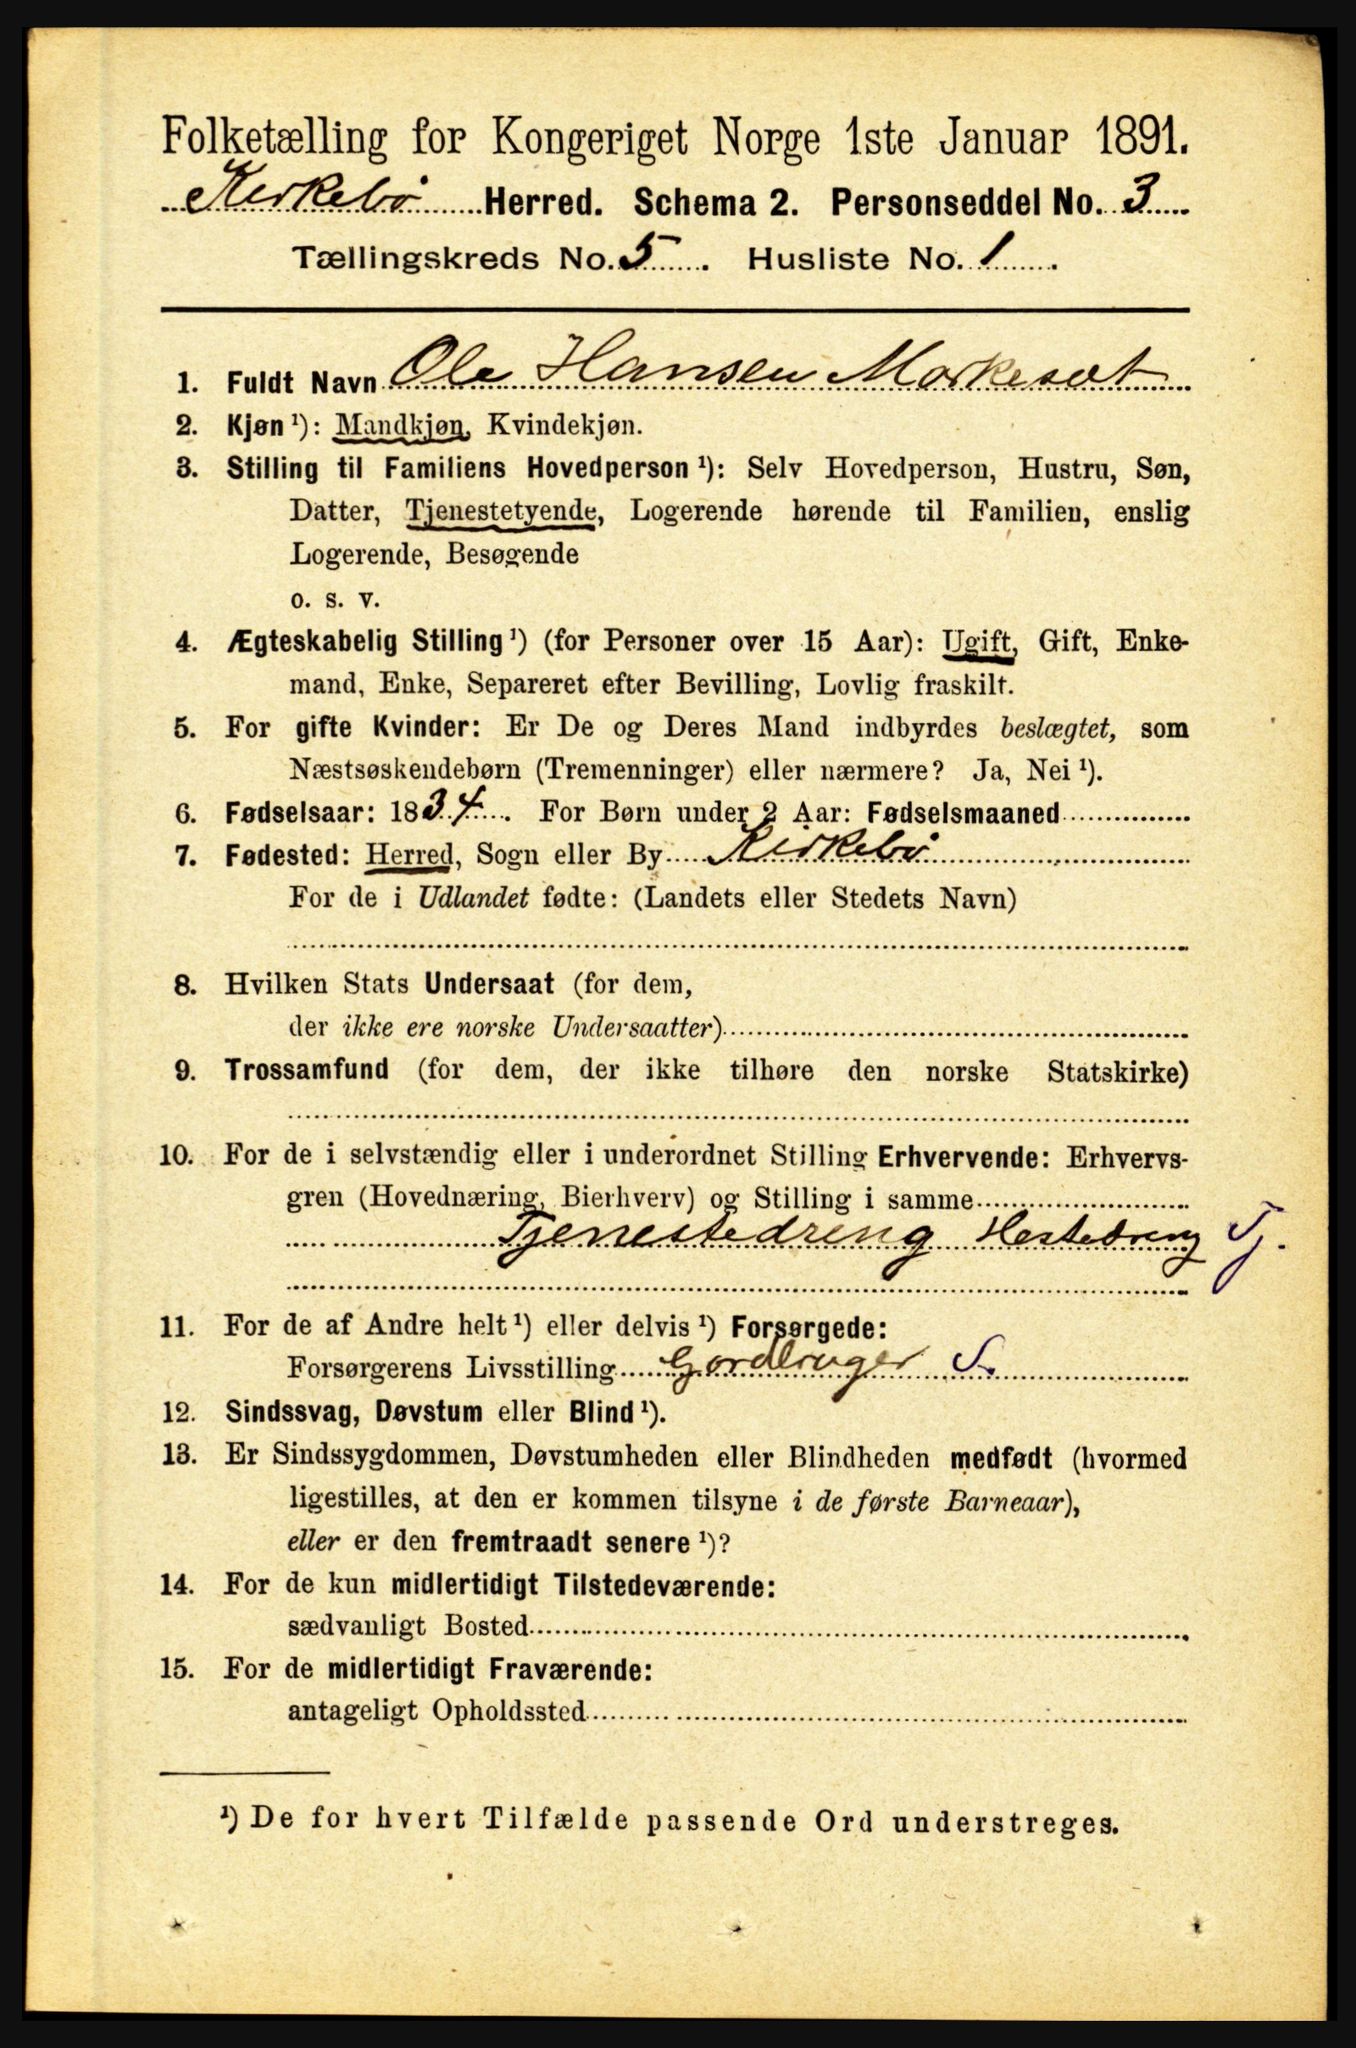 Folketælling for Kongeriget Norge 1ste Januar 1891.
Kirkebø Herred. Schema 2. Personseddel No. 3
Tællingskreds No. 5. Husliste No. 1.
1. Fuldt Navn Ole Hansen Morkesæt
2. Kjøn ¹): Mandkjøn, Kvindekjøn.
3. Stilling til Familiens Hovedperson ¹): Selv Hovedperson, Hustru, Søn,
Datter, Tjenestetyende, Logerende hørende til Familien, enslig
Logerende, Besøgende
o. s. v.
4. Ægteskabelig Stilling ¹) (for Personer over 15 Aar): Ugift, Gift, Enke-
mand, Enke, Separeret efter Bevilling, Lovlig fraskilt.
5. For gifte Kvinder: Er De og Deres Mand indbyrdes beslægtet, som
Næstsøskendebørn (Tremenninger) eller nærmere? Ja, Nei ¹).
6. Fødselsaar: 1834. For Børn under 2 Aar: Fødselsmaaned
7. Fødested: Herred, Sogn eller By Kirkebø
For de i Udlandet fødte: (Landets eller Stedets Navn)
8. Hvilken Stats Undersaat (for dem,
der ikke ere norske Undersaatter)
9. Trossamfund (for dem, der ikke tilhøre den norske Statskirke)
10. For de i selvstændig eller i underordnet Stilling Erhvervende: Erhvervs-
gren (Hovednæring, Bierhverv) og Stilling i samme
Tjenestedreng Hestedreng Tj.
11. For de af Andre helt ¹) eller delvis ¹) Forsørgede:
Forsørgerens Livsstilling Gordbruger S.
12. Sindssvag, Døvstum eller Blind ¹).
13. Er Sindssygdommen, Døvstumheden eller Blindheden medfødt (hvormed
ligestilles, at den er kommen tilsyne i de første Barneaar),
eller er den fremtraadt senere ¹)?
14. For de kun midlertidigt Tilstedeværende:
sædvanligt Bosted
15. For de midlertidigt Fraværende:
antageligt Opholdssted
¹) De for hvert Tilfælde passende Ord understreges.